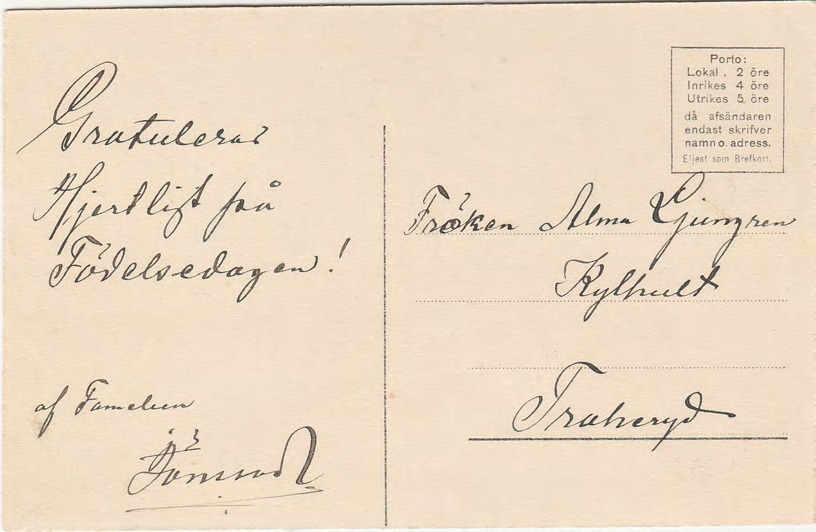 Gratuleras
Hjertligt på
Födelsedagen!
af Familien
Jönsson
Porto:
Lokal . 2 öre
Inrikes 4 öre
Utrikes 5 öre
då afsändaren
endast skrifver
namn o. adress.
Eljest som Brefkort.
Fröken Alma Ljungren
Kylhult
Traheryd